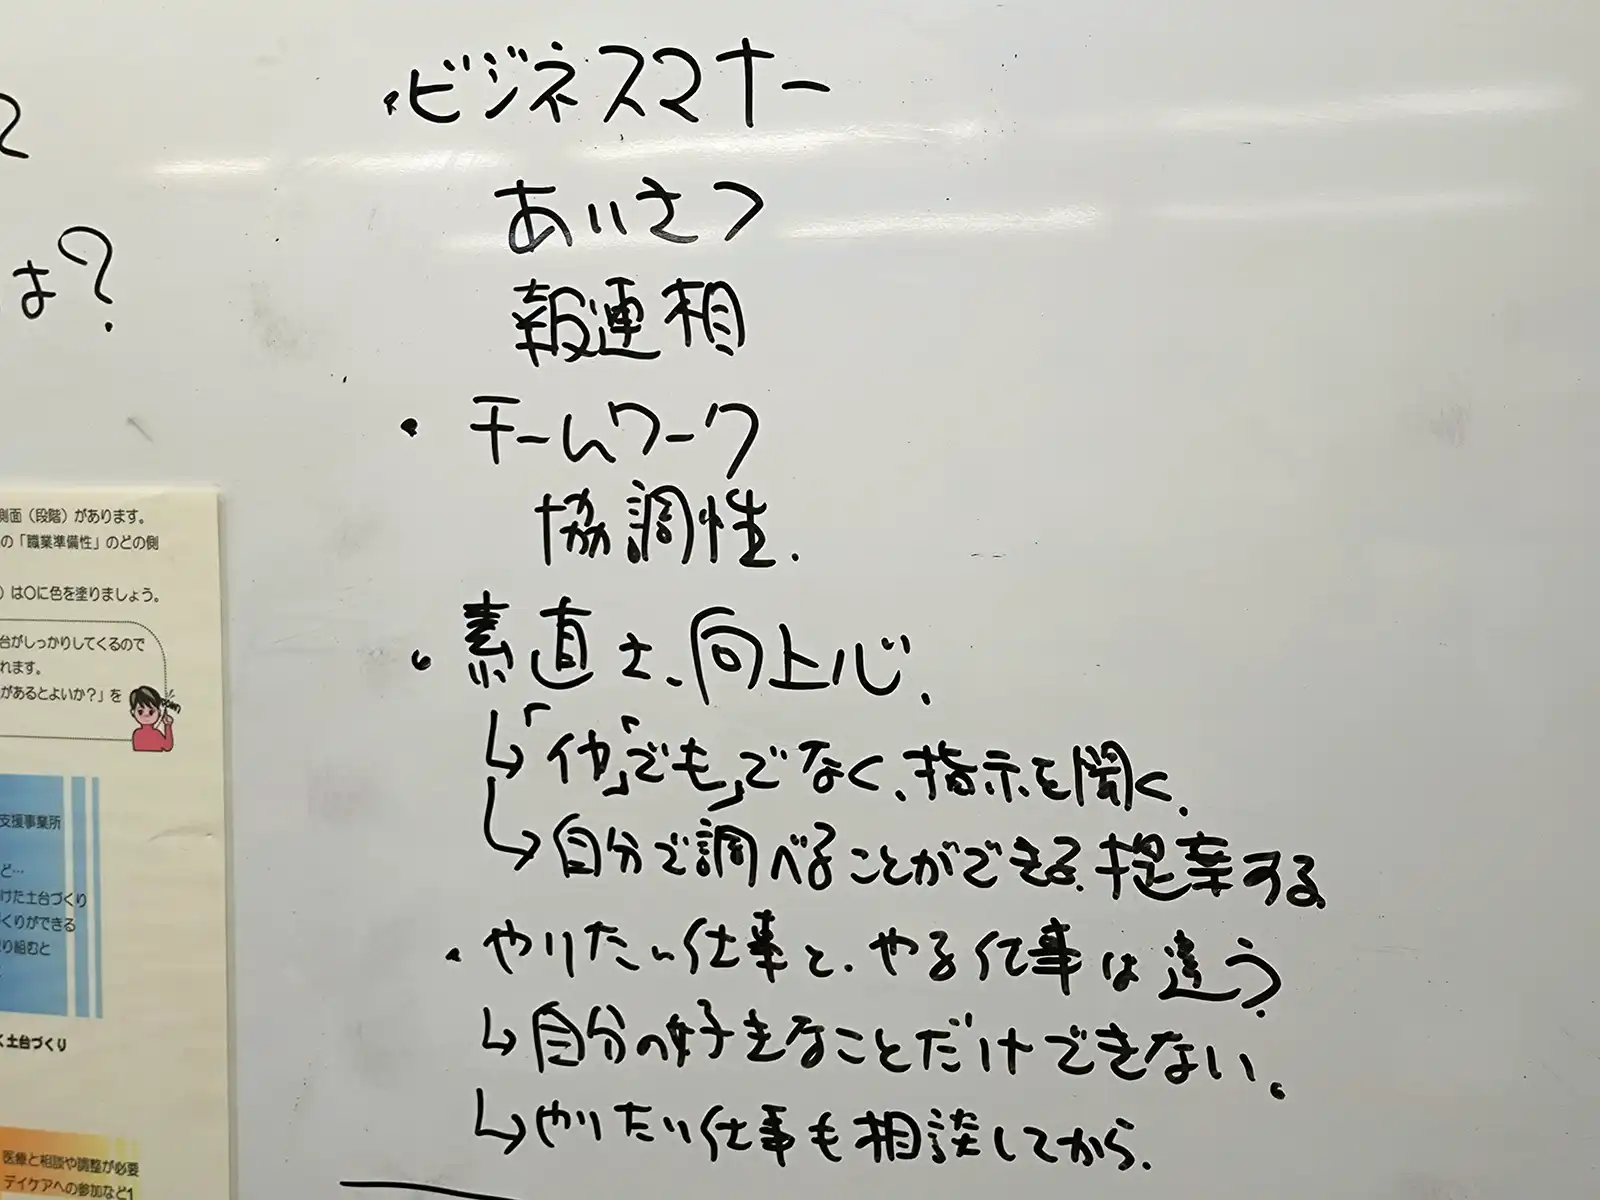 ・ビジネスマナー
あいさつ
報連相
・チームワーク
協調性.
・素直さ、向上心.
↳「「でも」でなく、指示を聞く.
↳自分で調べることができる.提案する.
・やりたい仕事と、やる仕事は違う.
↳自分の好きなことだけできない。
↳やりたい仕事も相談してから.
は?
側面（段階）があります。
の「職業準備性」のどの側
）は〇に色を塗りましょう。
台がしっかりしてくるので
れます。
があるとよいか?」を
支援事業所
ど…
けた土台づくり
くりができる
り組むと
く土台づくり
医療と相談や調整が必要
デイケアへの参加など1